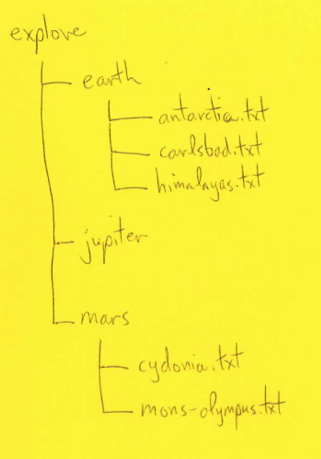 explore
earth
antarctica.txt
carlsbad.txt
himalayas.txt
jupiter
mars
cydonia.txt
mons-olympus.txt